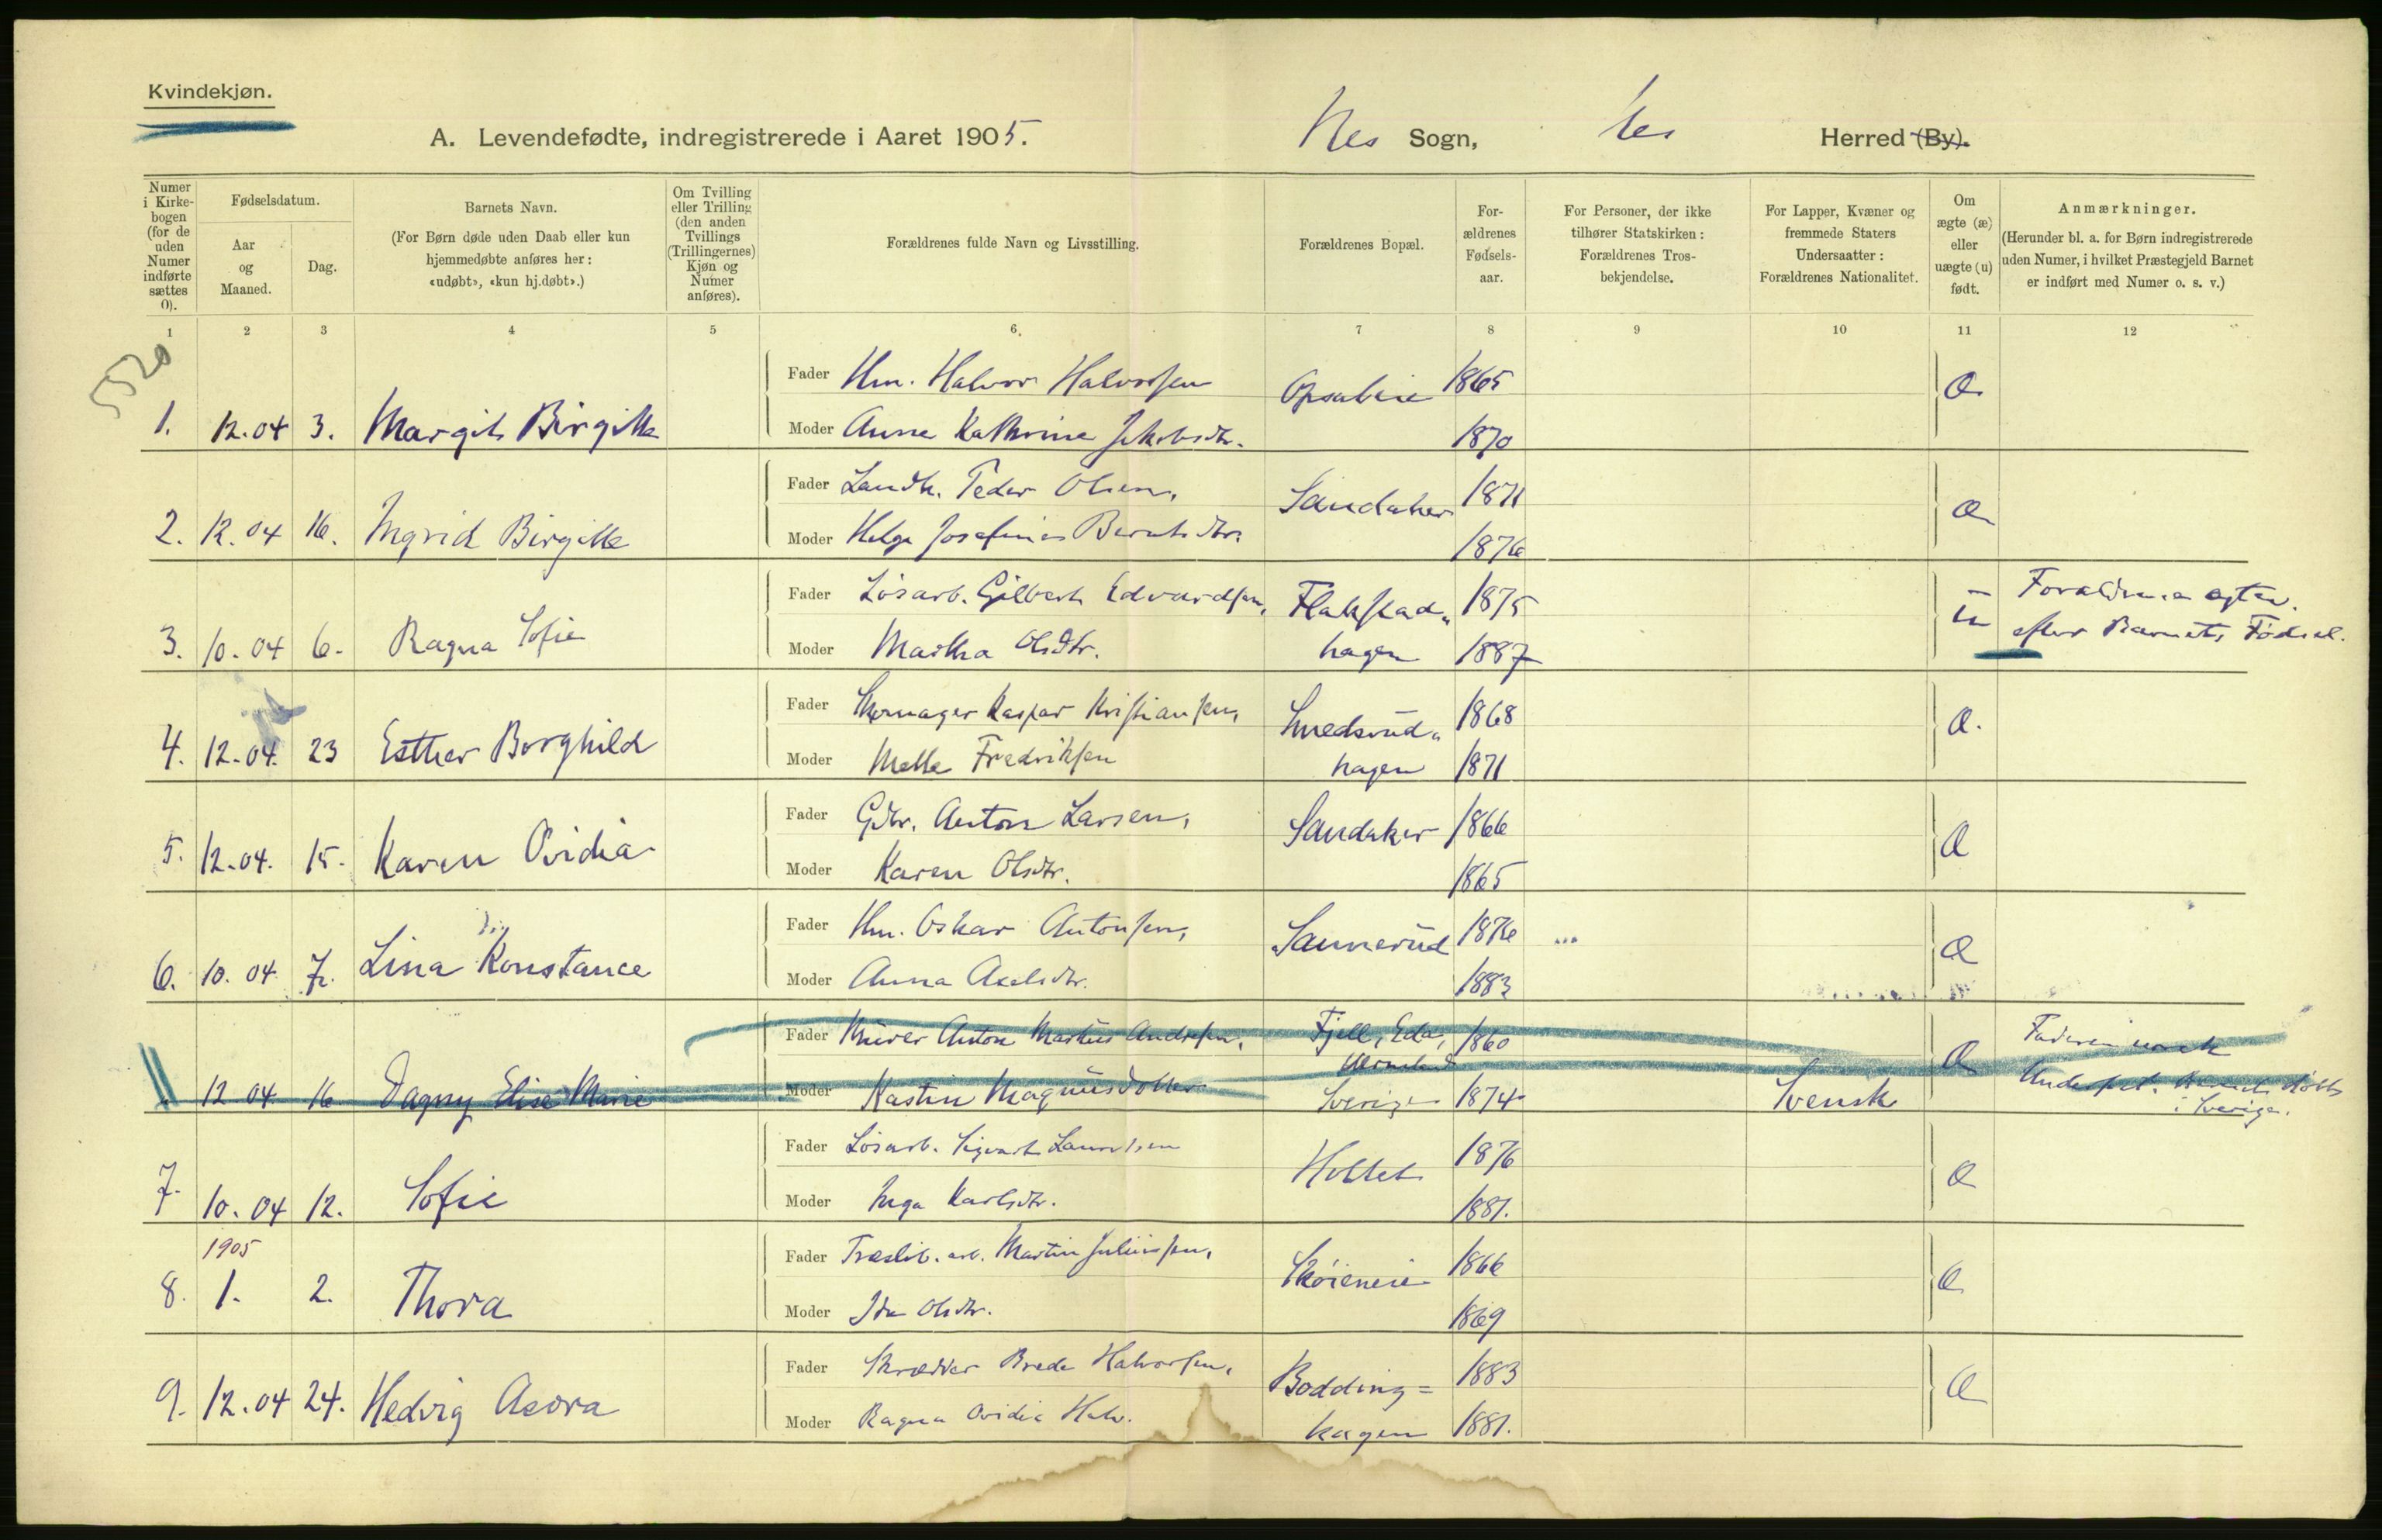 Kvindekjøn.
A. Levendefødte, indregistrerede i Aaret 1905. Nes Sogn, Nes Herred (By).
Numer i Kirkebogen (for de uden Numer indførte sættes 0).
Fødselsdatum.
Aar og Maaned.
Dag.
Barnets Navn.
(For Børn døde uden Daab eller kun hjemmedøbte anføres her: «udøbt», «kun hj.døbt».)
Om Tvilling eller Trilling (den anden Tvillings (Trillingernes) Kjøn og Numer anføres).
Forældrenes fulde Navn og Livsstilling.
Forældrenes Bopæl.
For-ældrenes Fødsels-aar.
For Personer, der ikke tilhører Statskirken: Forældrenes Tros-bekjendelse.
For Lapper, Kvæner og fremmede Staters Undersaatter: Forældrenes Nationalitet.
Om ægte (æ) eller uægte (u) født.
Anmærkninger.
(Herunder bl. a. for Børn indregistrerede uden Numer, i hvilket Præstegjeld Barnet er indført med Numer o. s. v.)
1 2 3 4 5 6. 7 8 9 10 11 12
5520
Fader Hm. Halvor Halvorsen Opsaleie 1865 Æ
1. 12.04 3. Margit Birgitte Moder Anna Kathrine Jakobsdtr. 1870
Fader Landh. Peder Olsen, Sandaker 1871 Æ
2. 12.04 16. Ingrid Birgitte Moder Helga Josefine Berntsdtr. 1876
Fader Løsarb. Gilbert Edvardsen, Flakstad- 1875 u Forældrene egtev.
3. 10.04 6. Ragna Sofie Moder Martha Olsdtr. hagen 1887 efter Barnets Fødsel.
Fader Skomager Kaspar Kristiansen, Smedsrud- 1868 Æ.
4. 12.04. 23 Esther Borghild Moder Mette Fredriksen hagen 1871
Fader Gdbr. Anton Larsen, Sandaker 1866 Æ
5. 12.04. 15. Karen Ovidia Moder Karen Olsdtr. 1865
Fader Hm. Oskar Antonsen, Sannerud 1876 Æ
6. 10.04 7. Lina Konstance Moder Anna Axelsdtr. 1883
Fader Murer Anton Martius Andersen, Fjell, Eda, 1860 Æ Faderen norsk
Vermeland
12 04 16 Dagny Elise Marie Moder Kastin Magnusdotter Sverige 1874 Svensk Undersaat. Barnet døbt
i Sverige.
Fader Løsarb. Sigvart Lauritsen Holtet 1876 Æ
7. 10.04 12. Sofie Moder Inga Karlsdtr. 1881.
1905
Fader Træslib. arb. Martin Juliussen, Skøieneie 1866 Æ
8. 1. 2. Thora Moder Ida Olsdtr. 1869
Fader Skrædder Brede Halvorsen, Bodding= 1883 Æ
9. 12.04 24. Hedvig Asora Moder Ragna Ovidia Halv. hagen 1881.